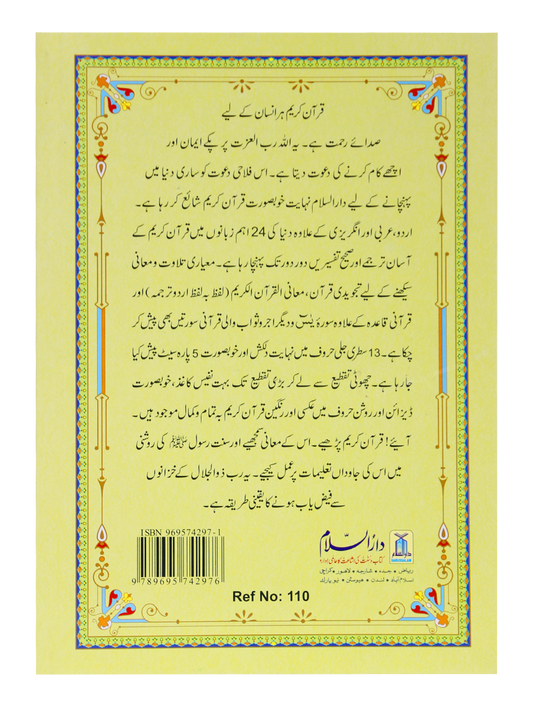 قرآن کریم ہر انسان کے لیے
صدائے رحمت ہے۔ یہ اللہ رب العزت پر پکے ایمان اور
اچھے کام کرنے کی دعوت دیتا ہے۔ اس فلاحی دعوت کو ساری دنیا میں
پہنچانے کے لیے دارالسلام نہایت خوبصورت قرآن کریم شائع کر رہا ہے۔
اردو، عربی اور انگریزی کے علاوہ دنیا کی 24 اہم زبانوں میں قرآن کریم کے
آسان ترجمے اور صحیح تفسیریں دور دور تک پہنچا رہا ہے۔ معیاری تلاوت و معانی
سیکھنے کے لیے تجویدی قرآن، معانی القرآن الکریم (لفظ بہ لفظ اردو ترجمہ) اور
قرآنی قاعدہ کے علاوہ سورۂ یٰسٓ و دیگر اجر و ثواب والی قرآنی سورتیں بھی پیش کر
چکا ہے۔ 13 سطری جلی حروف میں نہایت دلکش اور خوبصورت 5 پارہ سیٹ پیش کیا
جا رہا ہے۔ چھوٹی تقطیع سے لے کر بڑی تقطیع تک بہت نفیس کاغذ، خوبصورت
ڈیزائن اور روشن حروف میں عکسی اور رنگین قرآن کریم بہ تمام و کمال موجود ہیں۔
آیئے! قرآن کریم پڑھیے۔ اس کے معانی سمجھیے اور سنت رسول ﷺ کی روشنی
میں اس کی جاوداں تعلیمات پر عمل کیجیے۔ یہ رب ذوالجلال کے خزانوں
سے فیض یاب ہونے کا یقینی طریقہ ہے۔
ISBN 969574297-1
9 789695 742976
دارالسلام
کتاب و سنت کی اشاعت کا عالمی ادارہ
ریاض • جدہ • شارجہ • لاہور • کراچی
اسلام آباد • لندن • ہیوسٹن • نیو یارک
Ref No: 110